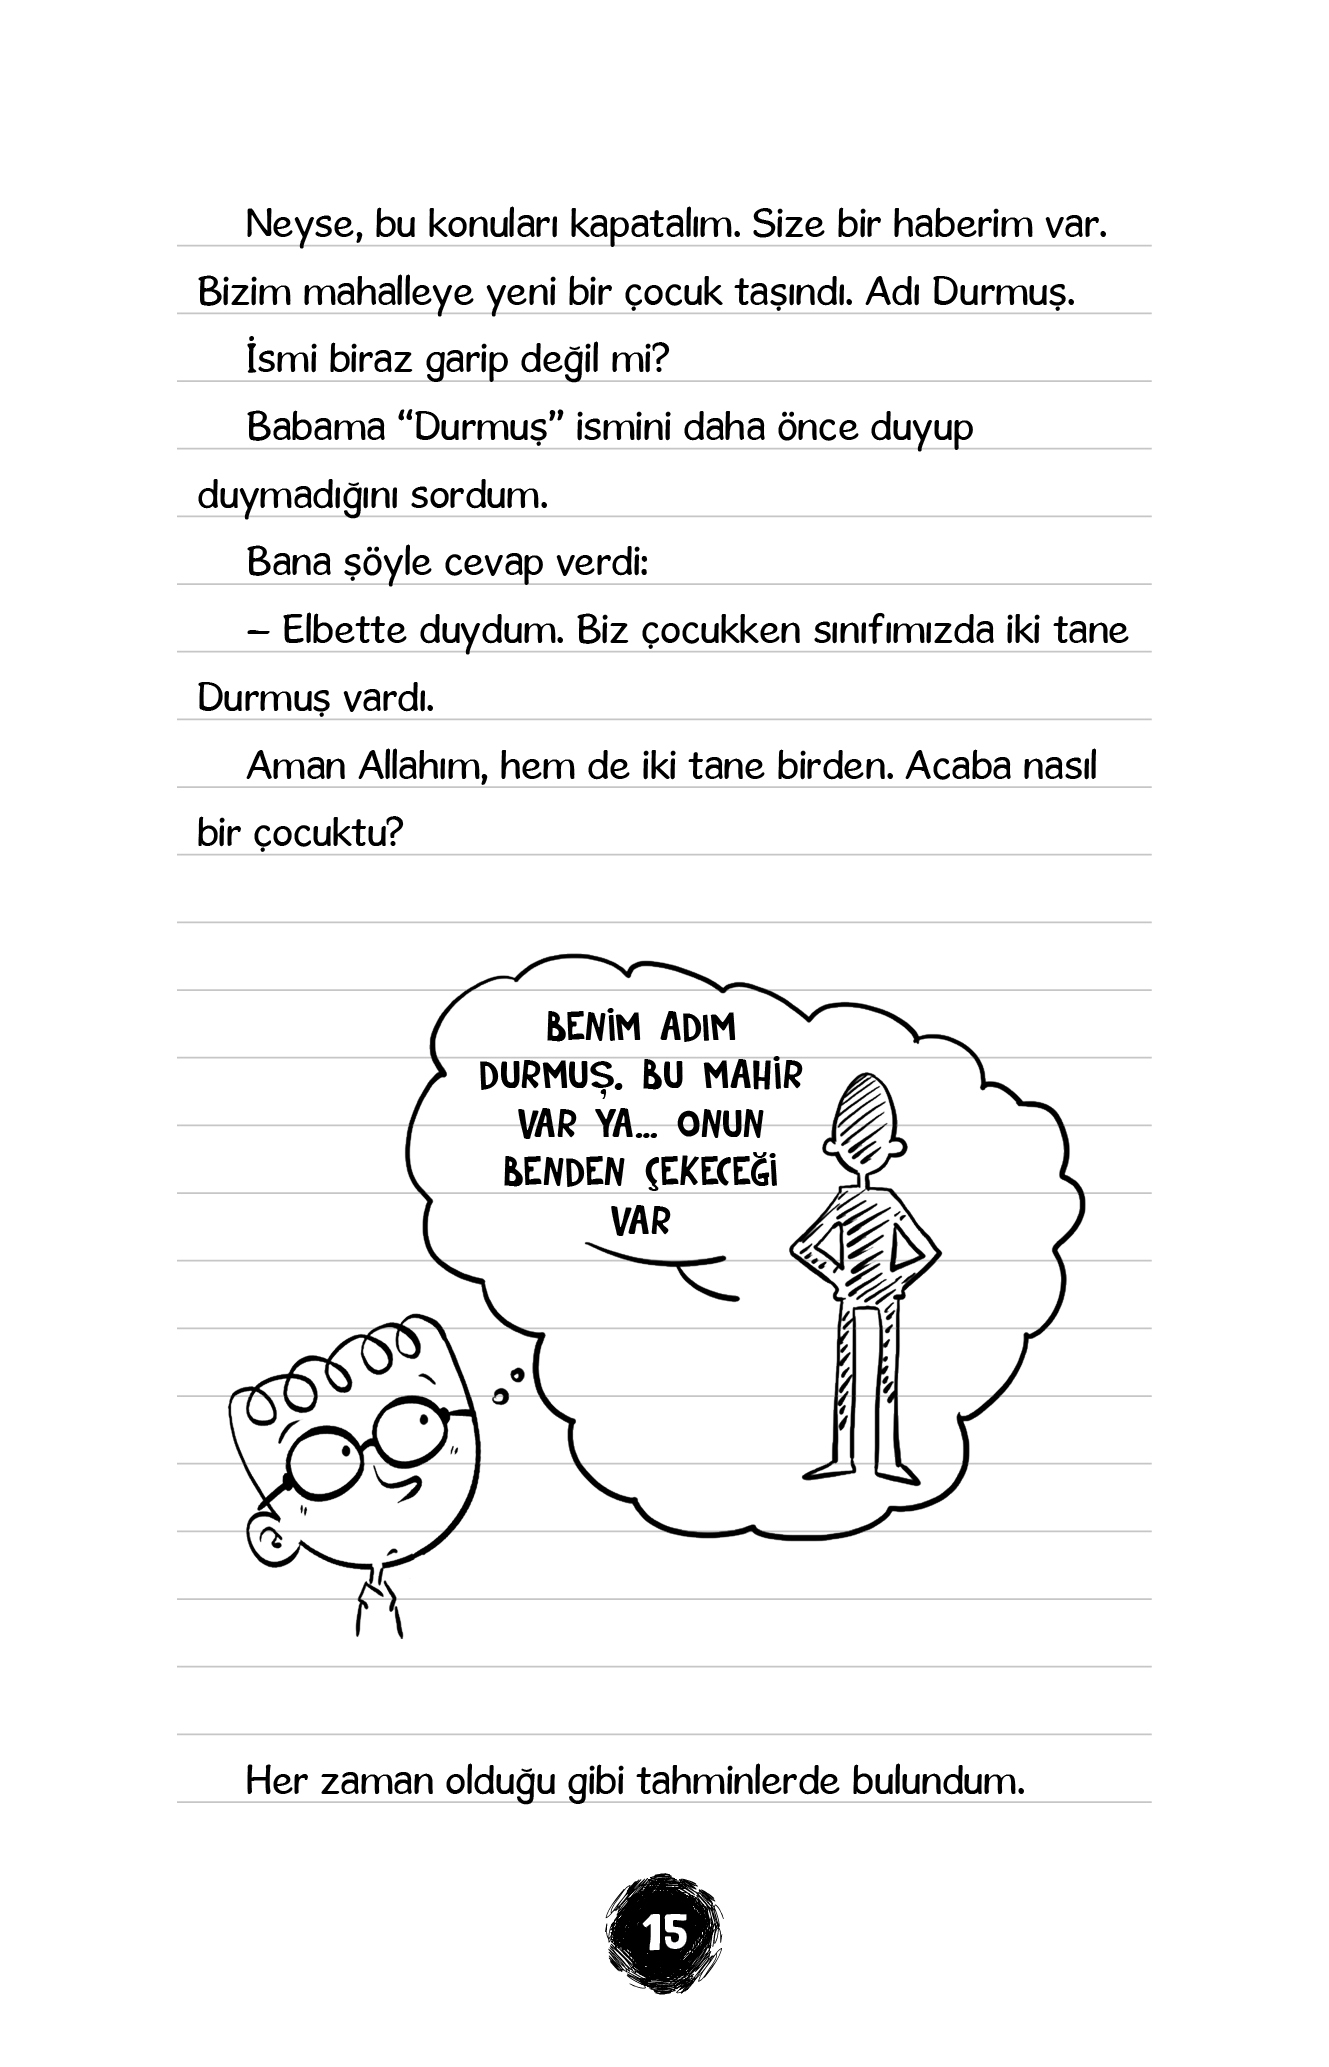 Neyse, bu konuları kapatalım. Size bir haberim var.
Bizim mahalleye yeni bir çocuk taşındı. Adı Durmuş.
İsmi biraz garip değil mi?
Babama “Durmuş” ismini daha önce duyup
duymadığını sordum.
Bana şöyle cevap verdi:
– Elbette duydum. Biz çocukken sınıfımızda iki tane
Durmuş vardı.
Aman Allahım, hem de iki tane birden. Acaba nasıl
bir çocuktu?
BENİM ADIM
DURMUŞ. BU MAHİR
VAR YA... ONUN
BENDEN ÇEKECEĞİ
VAR
Her zaman olduğu gibi tahminlerde bulundum.
15